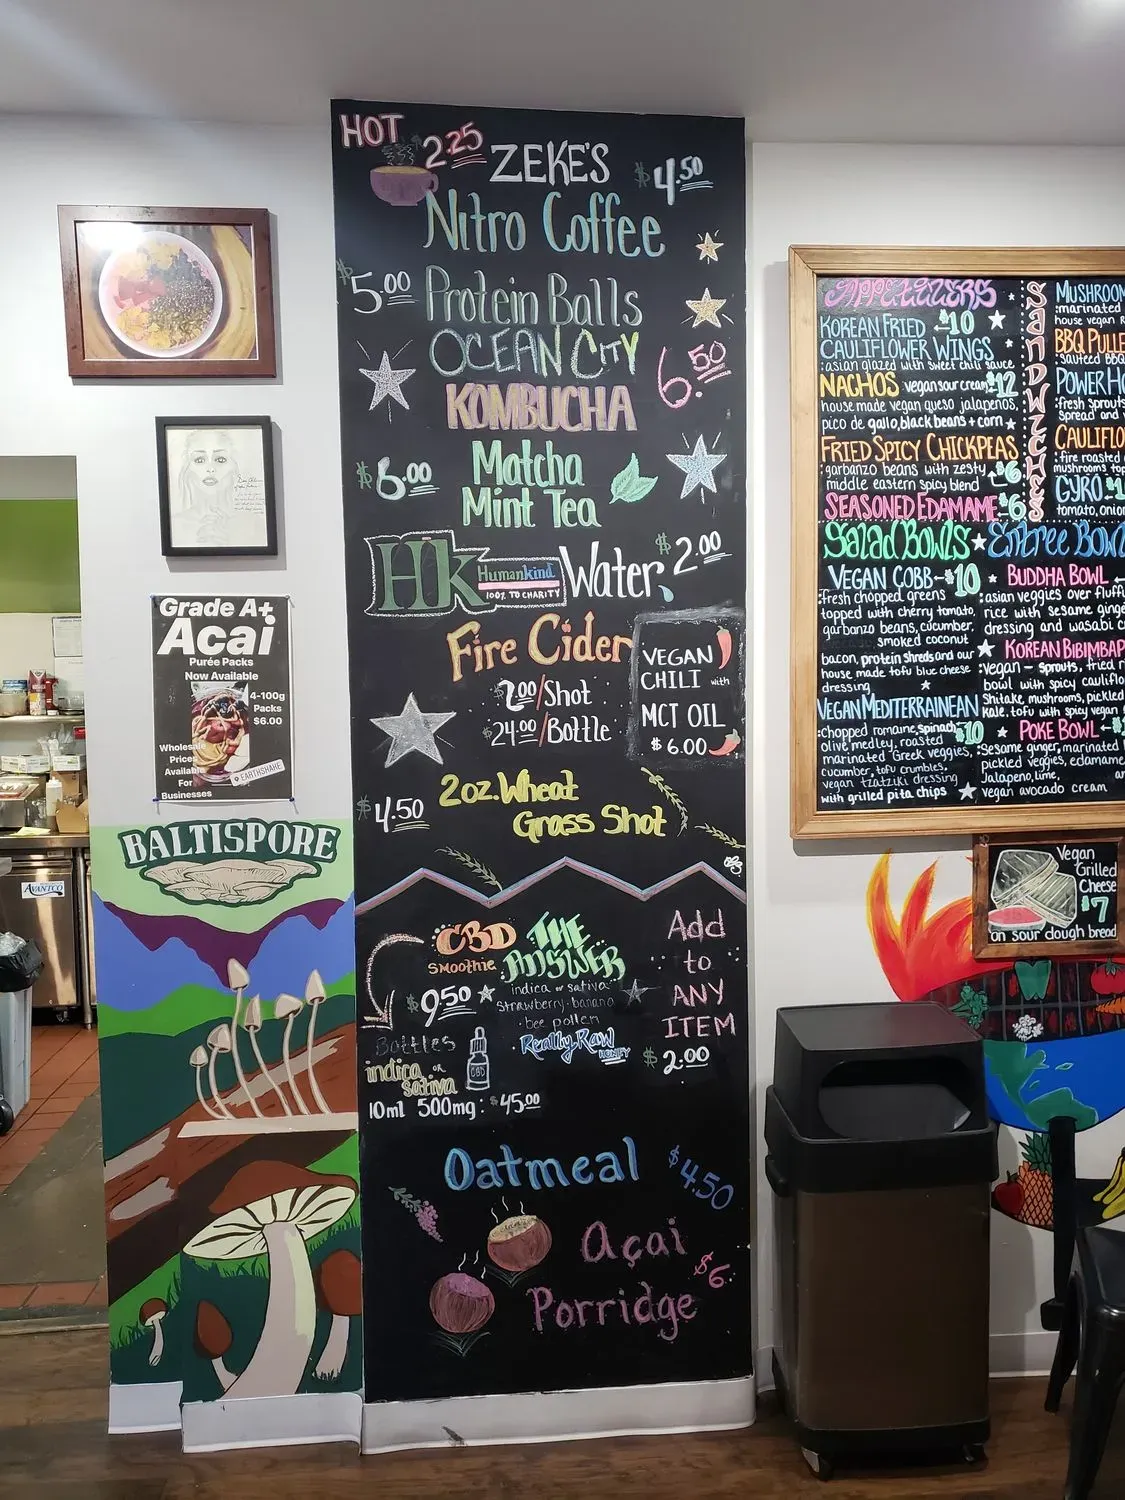 HOT 2.25
ZEKE'S $4.50
Nitro Coffee
$5.00 Protein Balls
OCEAN CITY
KOMBUCHA 6.50
$6.00 Matcha
Mint Tea
Hk Humankind
100% TO CHARITY
Water $2.00
Fire Cider
2.00/Shot
$24.00/Bottle
VEGAN
CHILI with
MCT OIL
$6.00
$4.50 2oz. Wheat
Grass Shot
CBD
SMOOTHIE
$9.50
THE
ANSWER
indica or sativa
strawberry·banana
·bee pollen
Really Raw
HONEY
Add
to
ANY
ITEM
$2.00
Bottles
indica OR
sativa
CBD
10ml 500mg: $45.00
Oatmeal $4.50
Açai
Porridge $6.
Grade A+
Acai
Purée Packs
Now Available
4-100g
Packs
$6.00
Wholesale
Prices
Available
For
Businesses
EARTHSHAKE
BALTISPORE
AVANTCO
APPETIZERS
KOREAN FRIED $10
CAULIFLOWER WINGS
:asian glazed with sweet chili sauce
NACHOS vegan sour cream $12
house made vegan queso jalapeños,
pico de gallo, black beans + corn
FRIED SPICY CHICKPEAS
garbanzo beans with zesty $6
middle eastern spicy blend
SEASONED EDAMAME $6
SANDWICHES
MUSHROOM
:marinated
house vegan
BBQ PULLE
sauteed BBQ
POWER HO
:fresh sprouts
spread and
CAULIFLO
:fire roasted
mushrooms top
GYRO
tomato, onion
Salad Bowls
VEGAN COBB $10
:fresh chopped greens
topped with cherry tomato,
garbanzo beans, cucumber,
smoked coconut
bacon, protein shreds and our
house made tofu blue cheese
dressing
VEGAN MEDITERRANEAN
:chopped romaine, spinach $10
olive medley, roasted
marinated Greek veggies,
cucumber, tofu crumbles,
vegan tzatziki dressing
with grilled pita chips
Entree Bowl
BUDDHA BOWL
:asian veggies over fluff
rice with sesame ginge
dressing and wasabi c
KOREAN BIBIMBAP
:vegan - sprouts, fried r
bowl with spicy cauliflo
Shitake mushrooms, pickled
Kale, tofu with spicy vegan
POKE BOWL
:Sesame ginger, marinated
pickled veggies, edamame
Jalapeno, lime,
vegan avocado cream
Vegan
Grilled
Cheese
$7
on sour dough bread